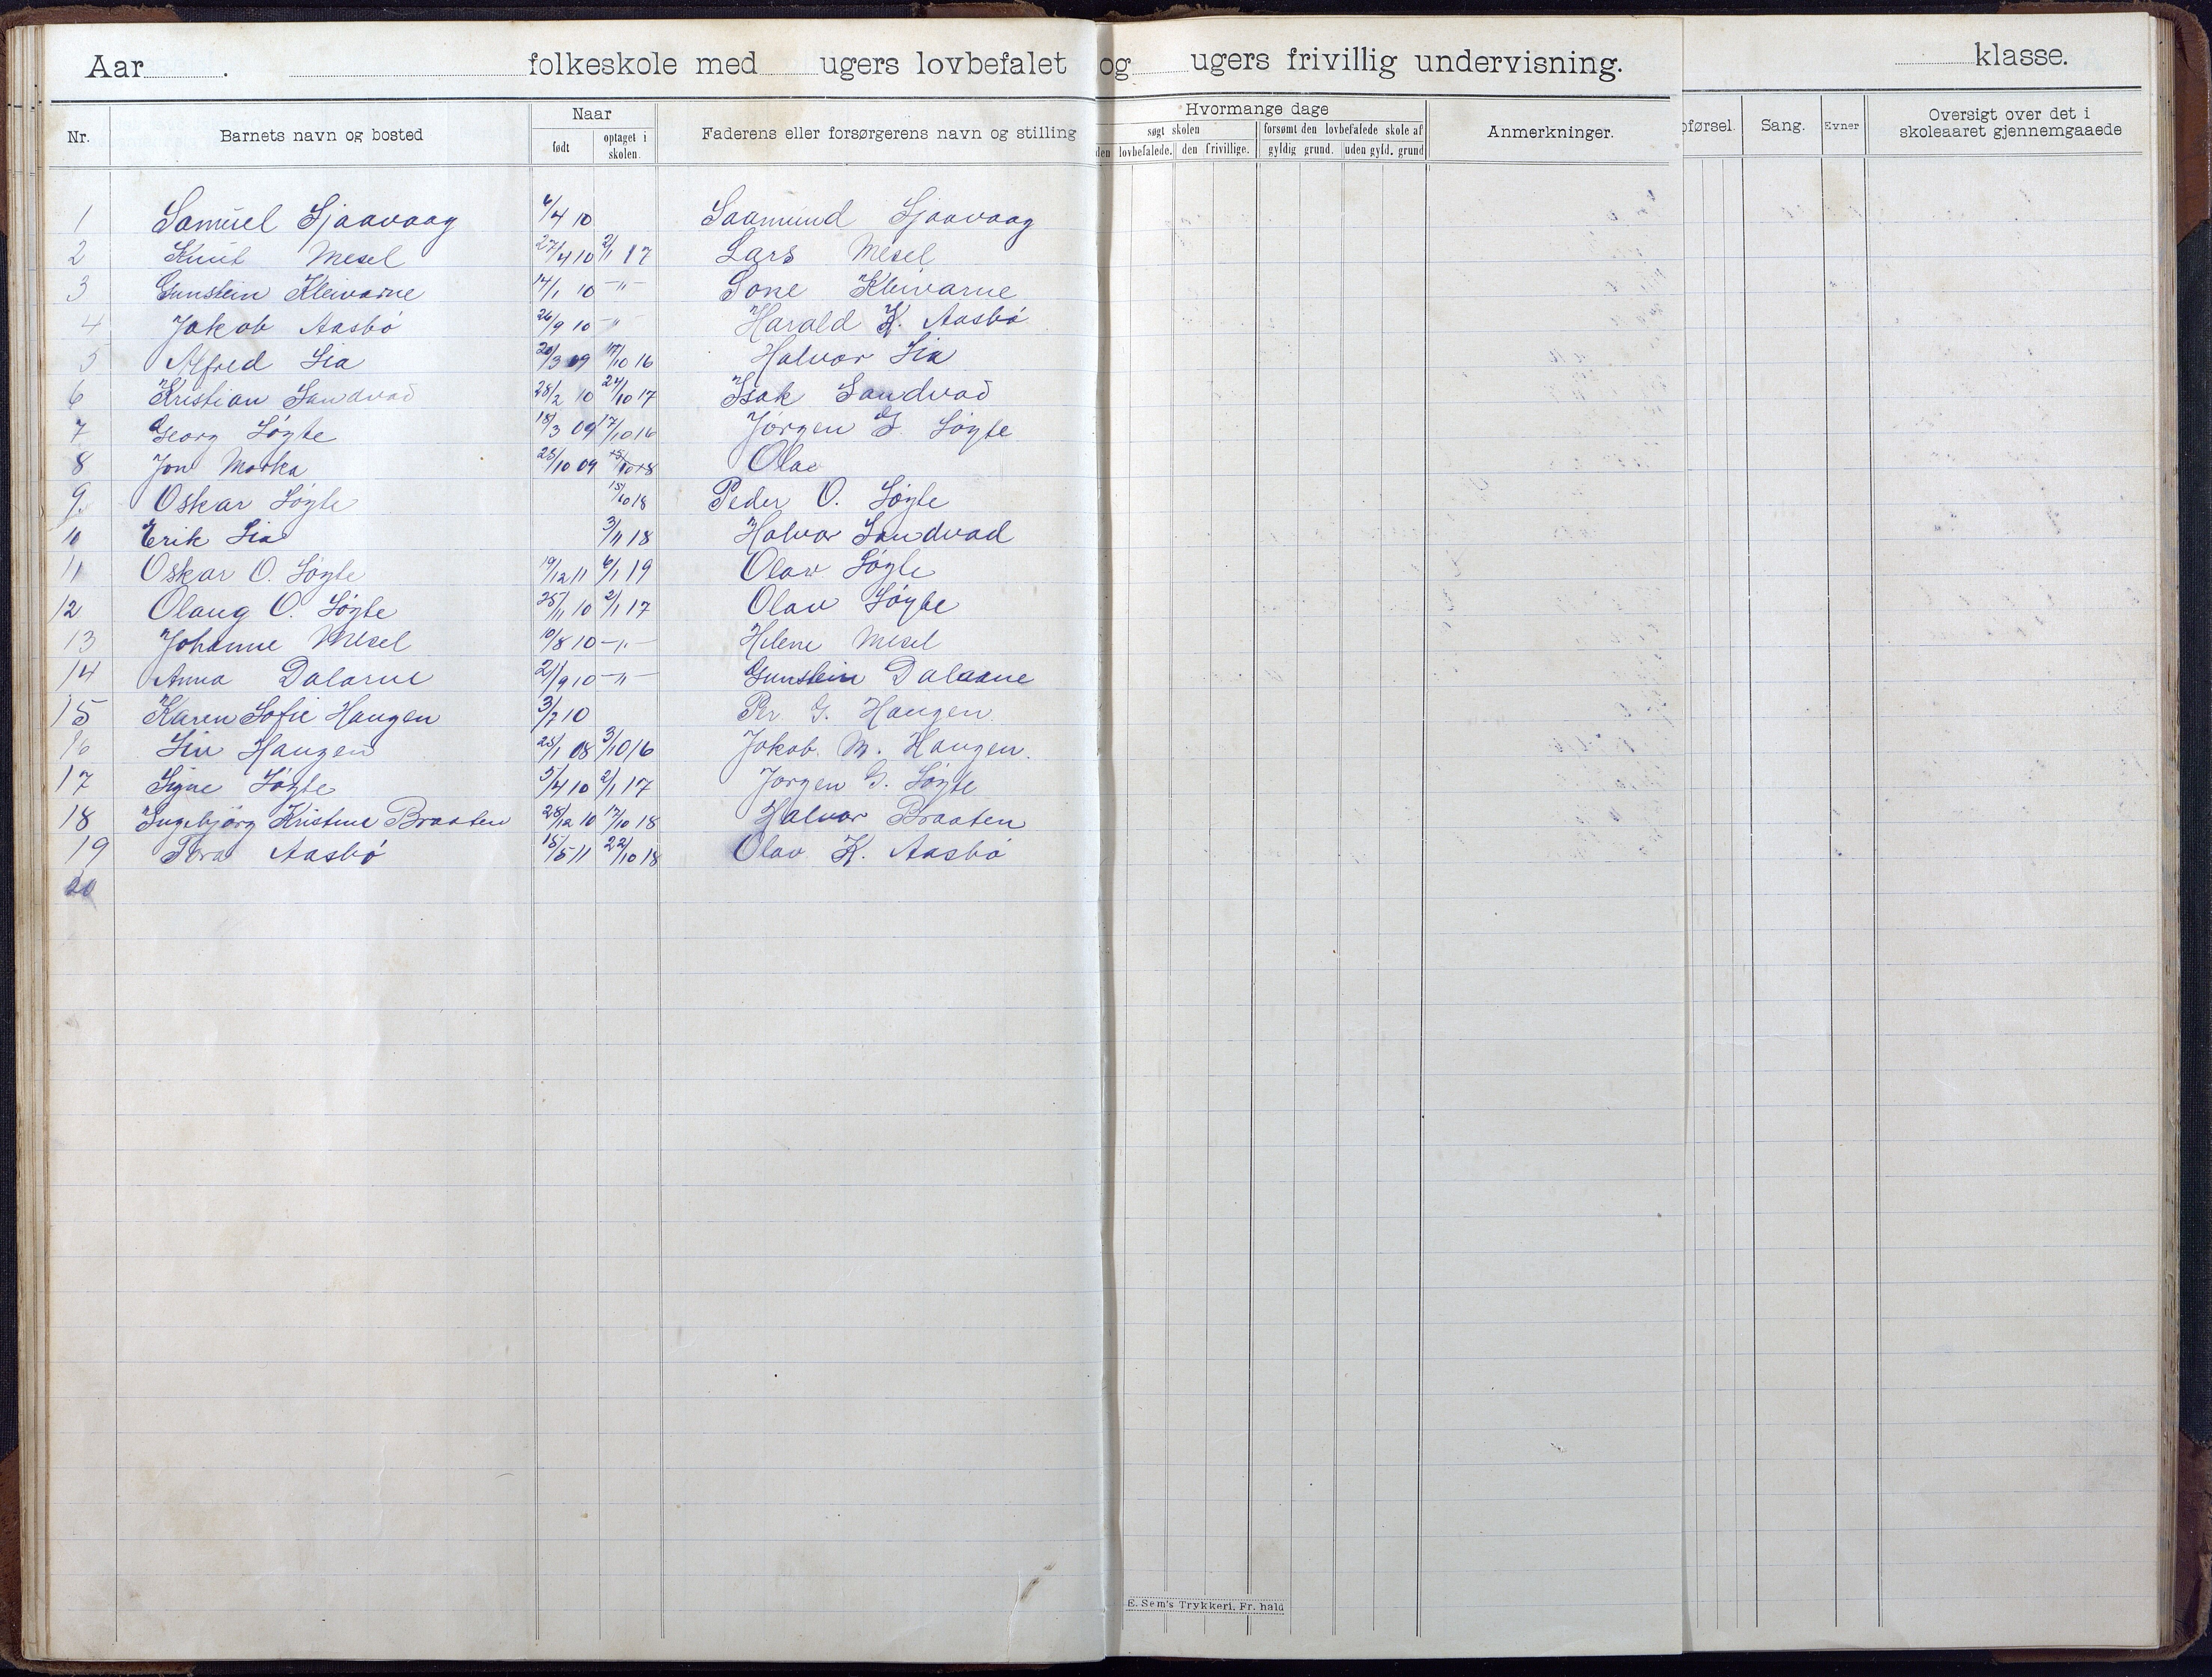 Aar ........ . ........ folkeskole med ........ ugers lovbefalet og ........ ugers frivillig undervisning. ........ klasse.
Nr. Barnets navn og bosted Naar født optaget i skolen. Faderens eller forsørgerens navn og stilling
Hvormange dage
søgt skolen forsømt den lovbefalede skole af Anmerkninger.
den lovbefalede. den frivillige. gyldig grund. uden gyld. grund
oførsel. Sang. Evner Oversigt over det i skoleaaret gjennemgaaede
1 Samuel Sjaavaag 6/4 10 Saamund Sjaavaag
2 Knut Mesel 27/4 10 2/1 17 Lars Mesel
3 Gunstein Kleivarne 14/1 10 -"- Tone Kleivarne
4 Jakob Aasbø 26/9 10 -"- Harald K. Aasbø
5 Alfred Lia 20/3 09 17/10 16 Halvor Lia
6 Kristian Sandvad 28/2 10 24/10 17 Isak Sandvad
7 Georg Løyte 18/3 09 17/10 16 Jørgen G. Løyte
8 Jon Morka 25/10 09 Olav
9. Oskar Løyte 15/10 18 Peder O. Løyte
10 Erik Lia 3/11 18 Halvor Sandvad
11 Oskar O. Løyte 19/12 11 6/1 19 Olav Løyte
12 Olaug O. Løyte 25/11 10 2/1 17 Olav Løyte
13 Johanne Mesel 10/8 10 -"- Helene Mesel
14 Anna Dalarne 21/9 10 -"- Gunstein Dalaane
15 Karen Sofie Haugen 3/7 10 Per G. Haugen
16 Liv Haugen 25/1 08 3/10 16 Jakob M. Haugen.
17 Signe Løyte 5/4 10 2/1 17 Jørgen G. Løyte
18 Ingebjørg Kristine Braaten 28/12 10 17/10 18 Halvor Braaten
19 Tora Aasbø 15/5 11 22/10 18 Olav K. Aasbø
20
E. Sem's Trykkeri, Fr. hald